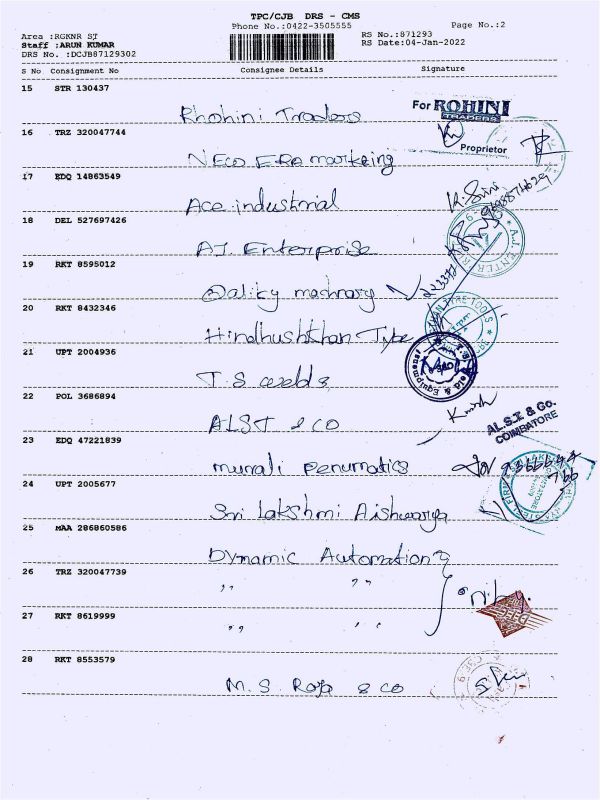 TPC/CJB DRS - CMS
Phone No.:0422-3505555
Page No.:2
Area :RGKNR ST
Staff :ARUN KUMAR
DRS No. :DCJB87129302
RS No.:871293
RS Date:04-Jan-2022
S No Consignment No Consignee Details Signature
15 STR 130437
Rhohini Traders
For ROHINI
TRADERS
Proprietor
16 TRZ 320047744
NECO ERA marketing
17 EDQ 14863549
Ace industrial
K. Sini
18 DEL 527697426
A.J. Enterprise
19 RKT 8595012
Qality mashnary
20 RKT 8432346
Hindhushthan Type
21 UPT 2004936
T.S welds
22 POL 3686894
ALST & CO
AL.S.T. & Co.
COIMBATORE
23 EDQ 47221839
murali penumatics
24 UPT 2005677
Sri Lakshmi Aishwarya
25 MAA 286860586
Dynamic Automation
26 TRZ 320047739
,, ,,
27 RKT 8619999
,, ,,
28 RKT 8553579
M. S. Raja & co